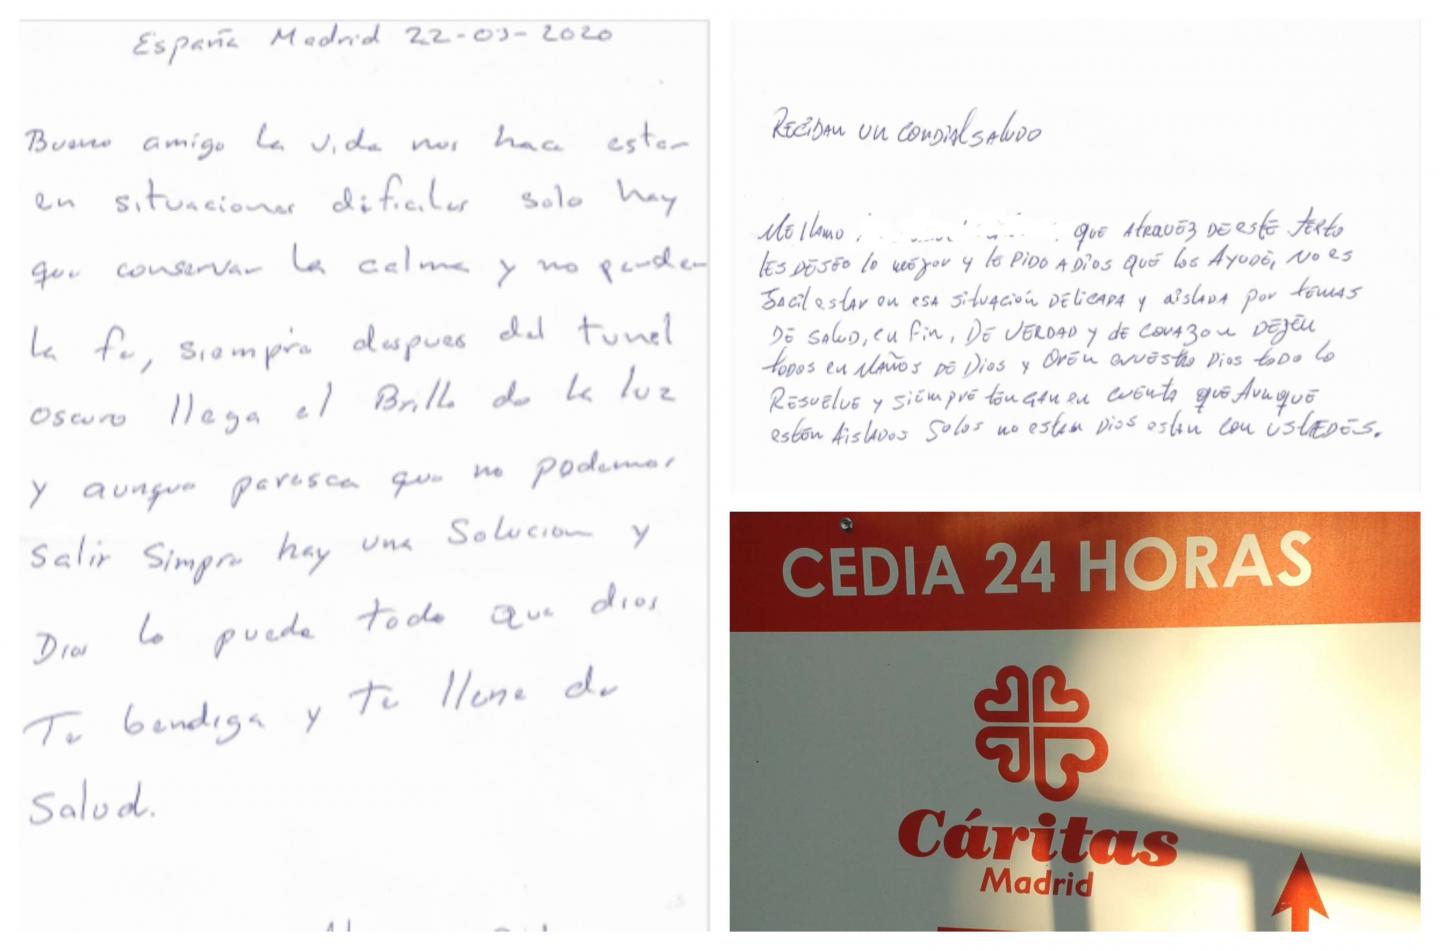 España Madrid 22-03-2020
Bueno amigo la vida nos hace estar
en situaciones dificiles solo hay
que conservar la calma y no perder
la fe, siempre despues del tunel
oscuro llega el Brillo de la luz
y aunque paresca que no podemos
Salir Simpre hay una Solucion y
Dios lo puede todo que dios
Te bendiga y te llene de
Salud.
RECIBAN UN CORDIAL SALUDO
ME llamo QUE ATRAVÉZ DE ESTE TEXTO
LES DESEO lo mejor y le PIDO A DIOS QUE los AYUDE, NO ES
FACIL ESTAR en ESA SITUACIÓN DELICADA y AISLADA por TEMAS
DE SALUD, en fin, DE VERDAD y de CORAZON DEJEN
todos en MAÑOS DE DIOS y OREN NUESTRO DIOS todo lo
RESUELVE y SIEMPRE TENGAN en CUENTA QUE AUNQUE
estén AISLADOS SOLOS no estan DIOS estan CON USTEDES.
CEDIA 24 HORAS
Cáritas
Madrid